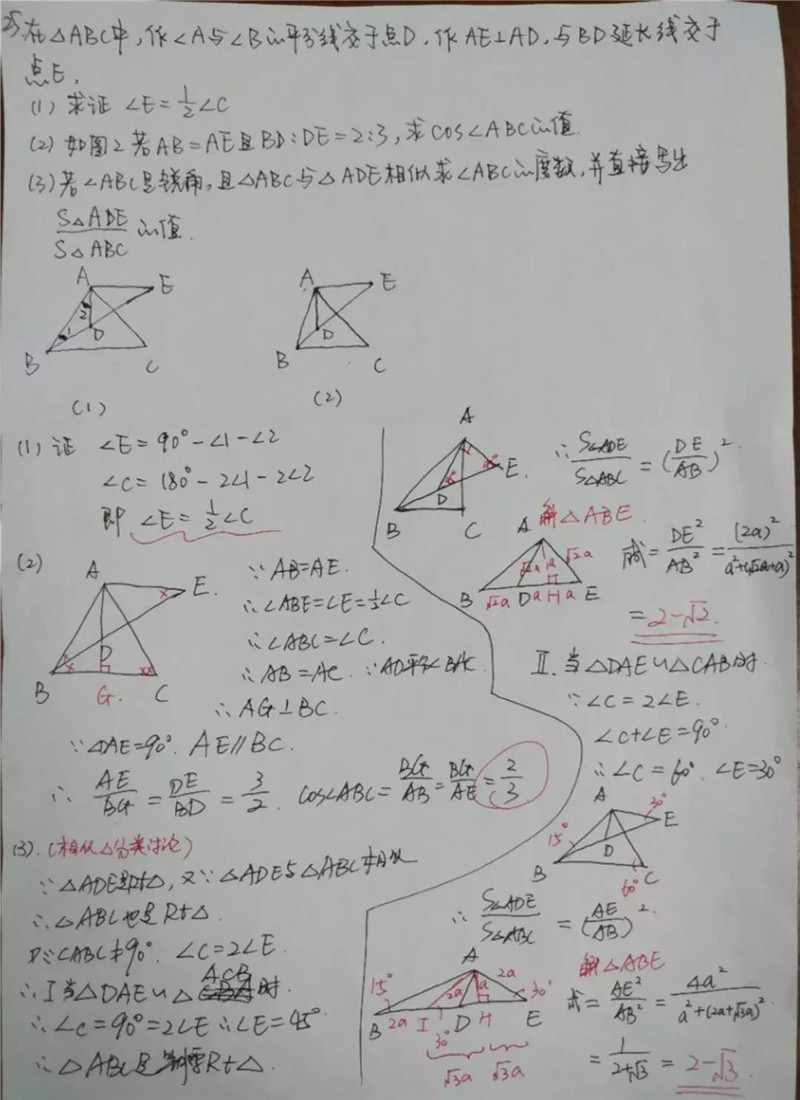 25 在△ABC中,作∠A与∠B的平分线交于点D,作AE⊥AD,与BD延长线交于
点E,
(1) 求证 ∠E=½∠C
(2) 如图2 若AB=AE且BD:DE=2:3,求cos∠ABC的值.
(3) 若∠ABC是锐角,且△ABC与△ADE相似求∠ABC的度数,并直接写出
S△ADE/S△ABC 的值.
A E
2
1 D
B C
(1)
A E
D
B C
(2)
(1) 证 ∠E=90°-∠1-∠2
∠C=180°-2∠1-2∠2
即 ∠E=½∠C
(2)
A E.
D
B G. C
x x xx
∵ AB=AE.
∴ ∠ABE=∠E=½∠C
∴ ∠ABC=∠C.
∴ AB=AC. ∵AD平分∠BAC
∴ AG⊥BC.
∵∠DAE=90°. AE∥BC.
∴ AE/BG = DE/BD = 3/2. cos∠ABC= BG/AB = BG/AE = 2/3
(3). (相似△分类讨论)
∵△ADE是Rt△,又∵△ADE与△ABC相似
∴△ABC也是Rt△.
∠ABC≠90°. ∠C=2∠E.
∴ I 当△DAE∽△ACB时.
∴∠C=90°=2∠E ∴∠E=45°
∴△ABC是等腰Rt△.
A
E.
D
B C
∴ S△ADE/S△ABC = (DE/AB)².
解△ABE.
A
√2a a √2a
B √2a D a H a E
式= DE²/AB² = (2a)²/a²+(√2a+a)²
=2-√2.
Ⅱ. 当△DAE∽△CAB时.
∵∠C=2∠E.
∠C+∠E=90°
∴∠C=60°. ∠E=30°
A 30° E
15° D
B 60° C
∴ S△ADE/S△ABC = (AE/AB)².
解△ABE
A
15° 2a a 2a 30°
B 2a I D H E
30°
√3a √3a
式= AE²/AB² = 4a²/a²+(2a+√3a)²
= 1/2+√3 = 2-√3